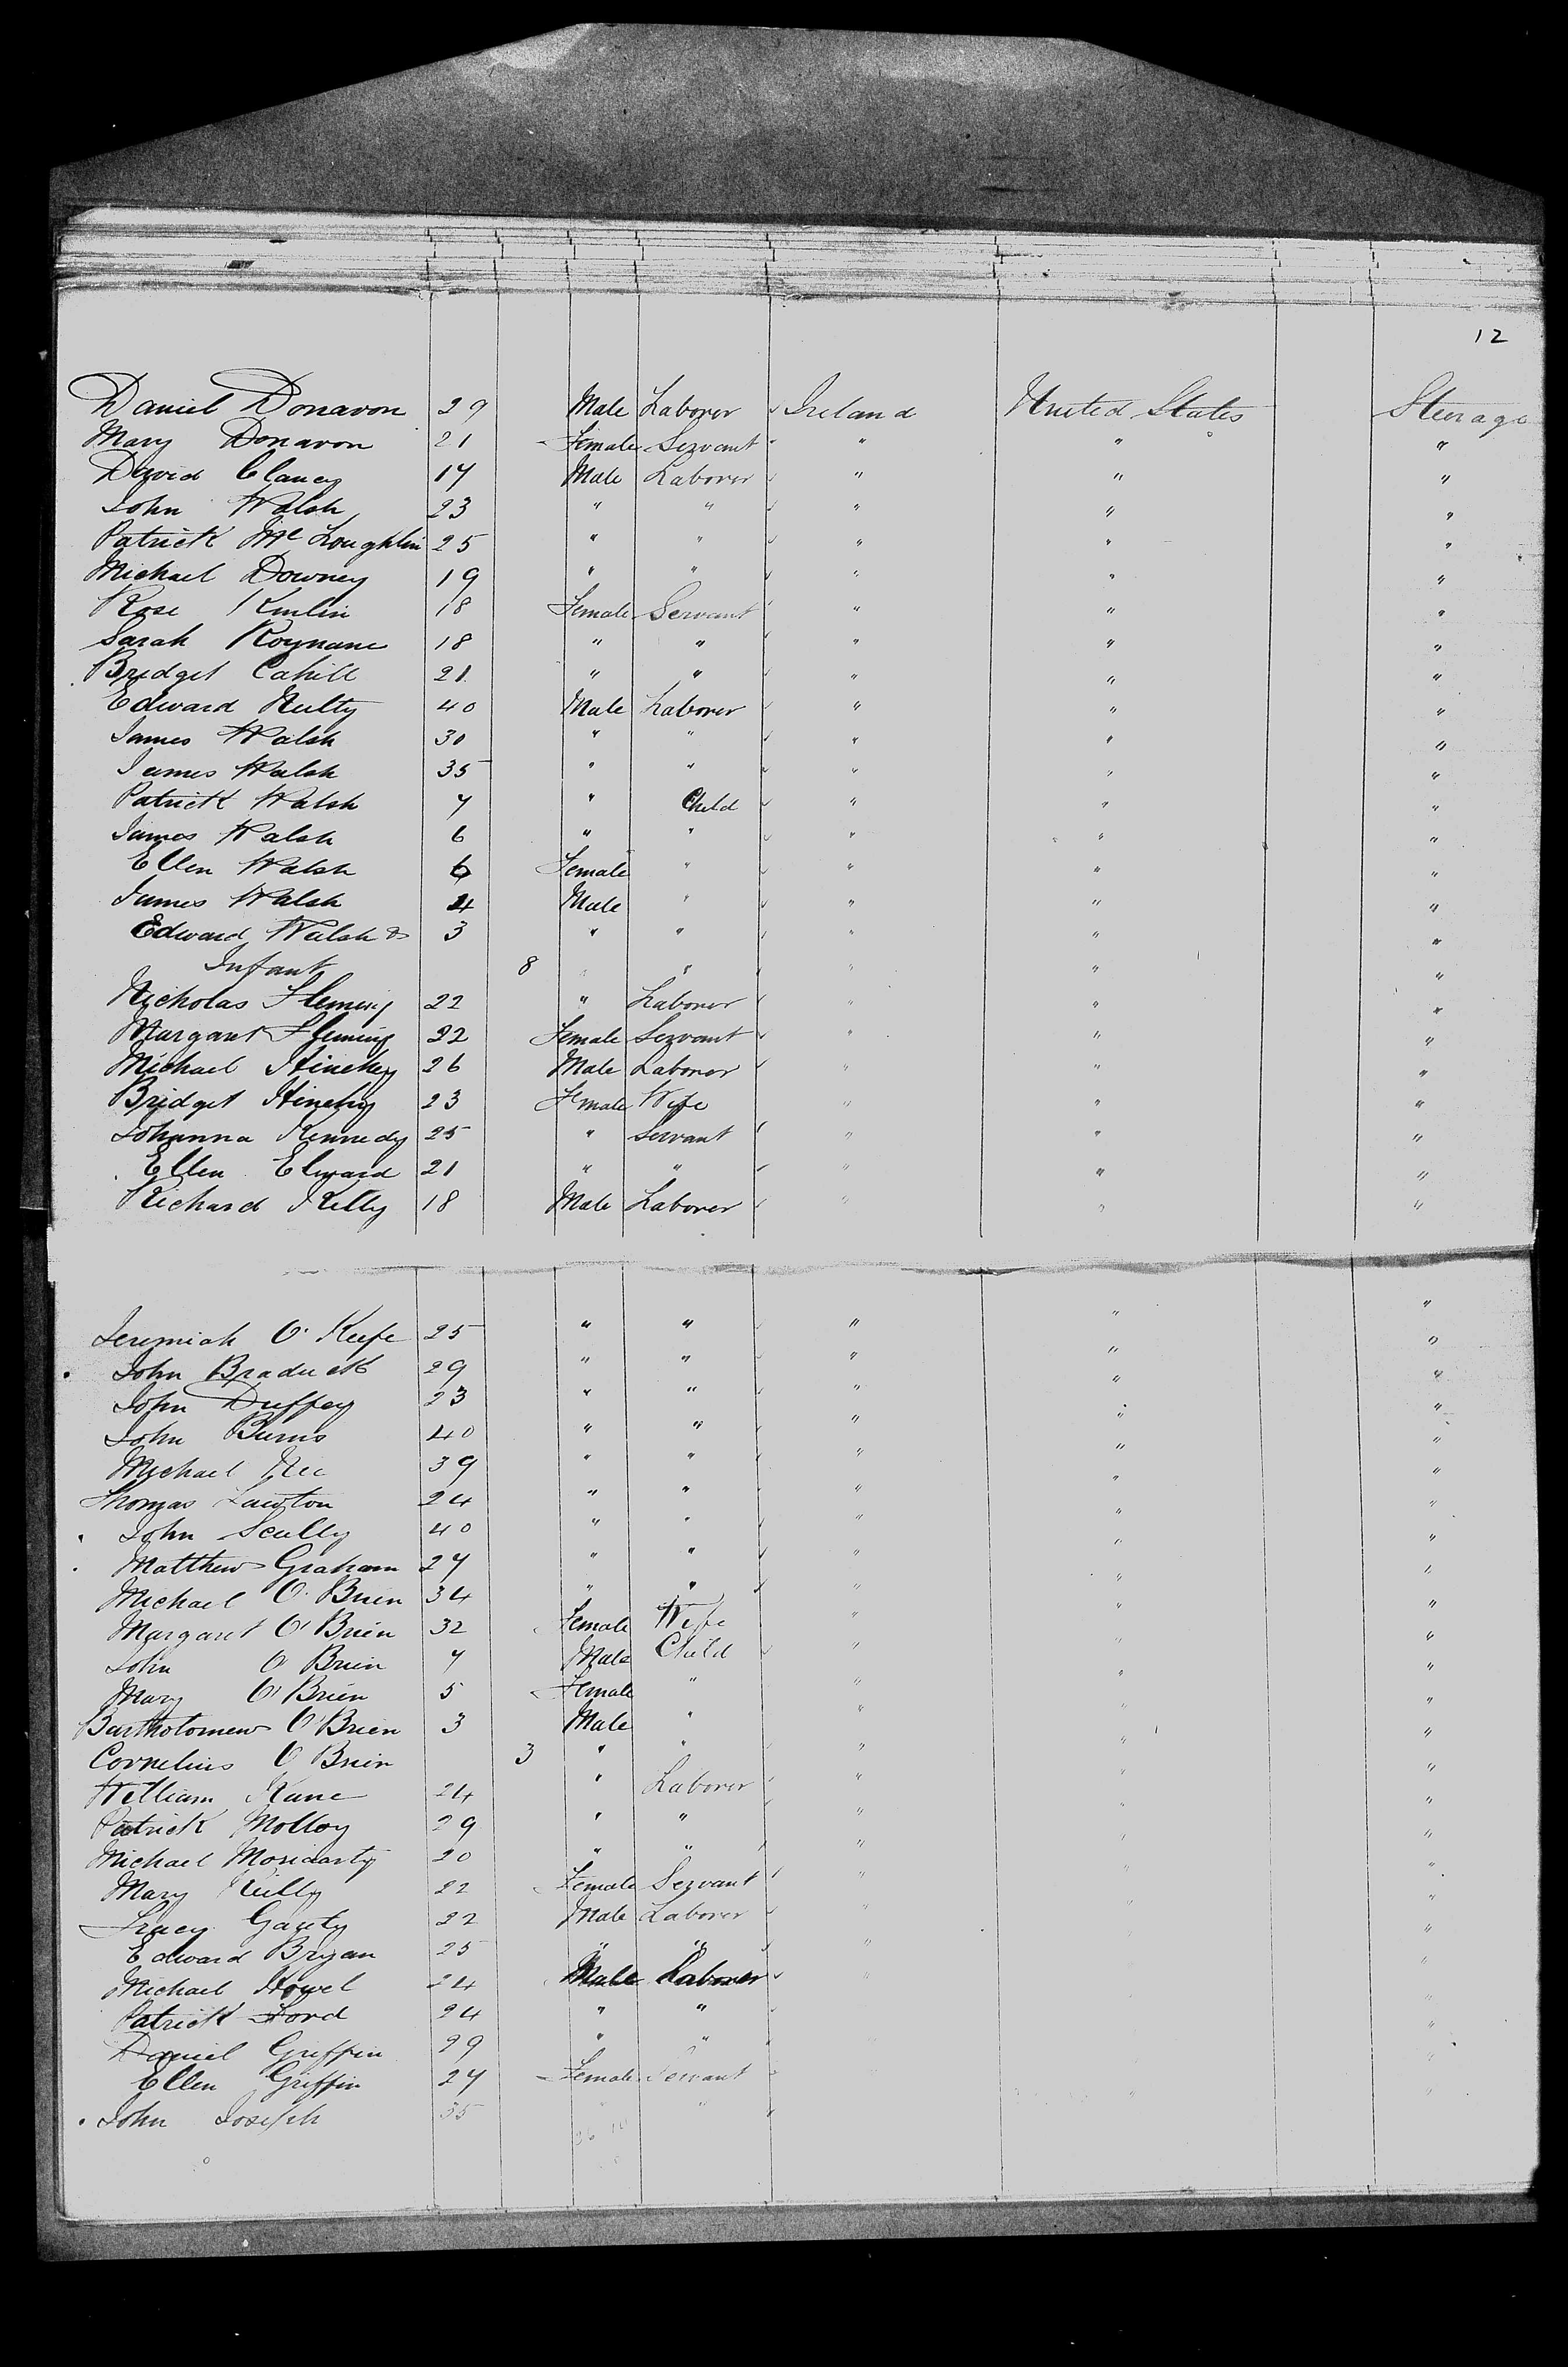 12
Daniel Donavon 29 Male Laborer Ireland United States Steerage
Mary Donavon 21 Female Servant " " "
David Clancy 17 Male Laborer " " "
John Walsh 23 " " " " "
Patrick Mc Loughlin 25 " " " " "
Michael Downey 19 " " " " "
Rose 18 Female Servant " " "
Sarah Roynane 18 " " " " "
Bridget Cahill 21 " " " " "
Edward Nulty 40 Male Laborer " " "
James Walsh 30 " " " " "
James Walsh 35 " " " " "
Patrick Walsh 7 " Child " " "
James Walsh 6 " " " " "
Ellen Walsh 6 Female " " " "
James Walsh 4 Male " " " "
Edward Walsh & 3 " " " " "
Infant 8 " " " " "
Nicholas Fleming 22 " Laborer " " "
Margaret Fleming 22 Female Servant " " "
Michael Hinchey 26 Male Laborer " " "
Bridget Hinchy 23 Female Wife " " "
Johanna Kennedy 25 " Servant " " "
Ellen Elward 21 " " " " "
Richard Kelly 18 Male Laborer " " "
Jeremiah O'Keefe 25 " " " " "
John 29 " " " " "
John Duffey 23 " " " " "
John Burns 40 " " " " "
Michael 39 " " " " "
Thomas Lawton 24 " " " " "
John Scully 40 " " " " "
Matthew Graham 27 " " " " "
Michael O'Brien 34 " " " " "
Margaret O'Brien 32 Female Wife " " "
John O Brien 7 Male Child " " "
Mary O'Brien 5 Female " " " "
Bartholomew O'Brien 3 Male " " " "
Cornelius O Brien 3 " " " " "
William Kane 24 " Laborer " " "
Patrick Molloy 29 " " " " "
Michael Moriarty 20 " " " " "
Mary Reilly 22 Female Servant " " "
Tracy 22 Male Laborer " " "
Edward Bryan 25 " " " " "
Michael Howel 24 Male Laborer " " "
Patrick Ford 24 " " "
Daniel Griffin 29 " " "
Ellen Griffin 27 Female Servant " "
John Joseph 35 "